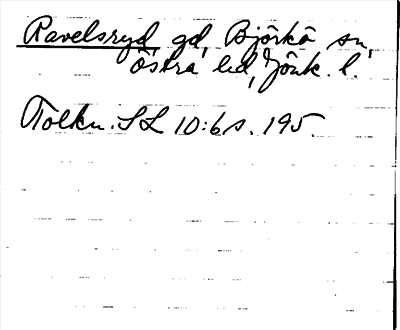 Ravelsryd, gd, Björkö sn,
Östra hd, Jönk. l.
Tolkn. SL 10:6 s. 195.